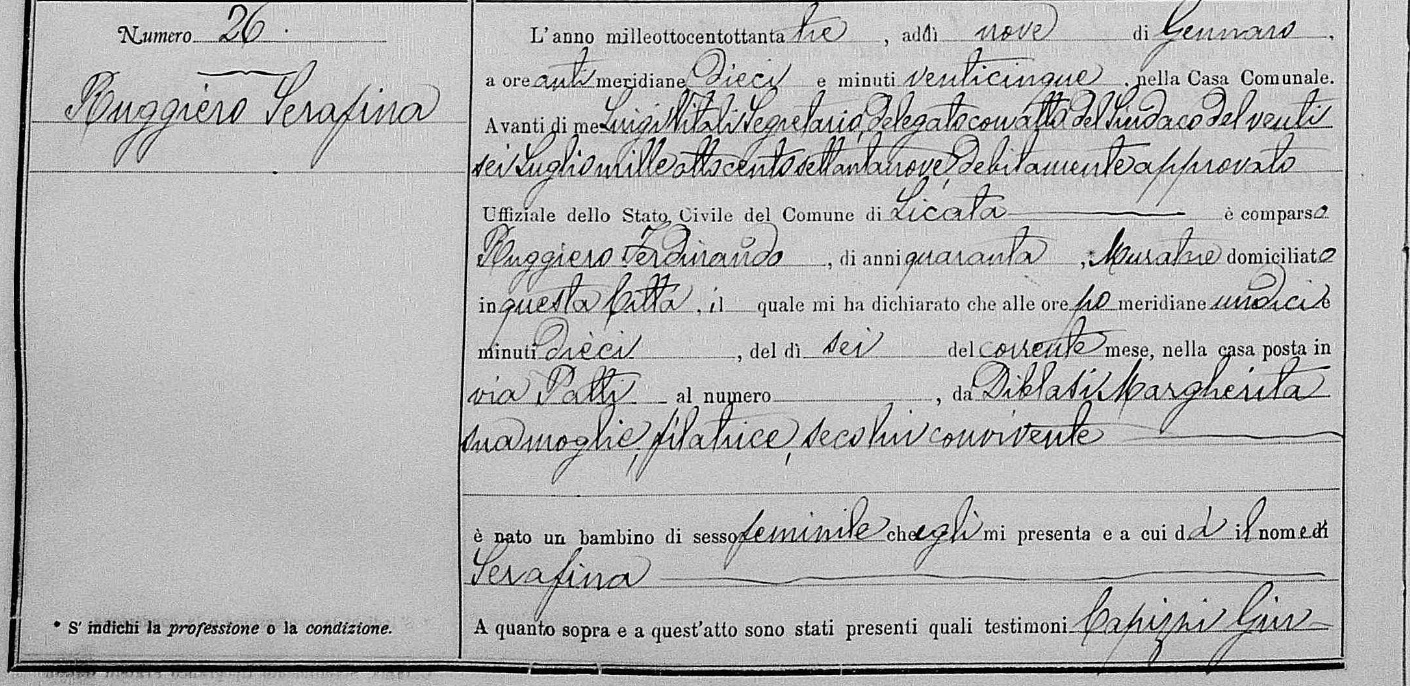 Numero 26.
Ruggiero Serafina
* S' indichi la professione o la condizione.
L'anno milleottocentottanta tre, addì nove di Gennaro,
a ore anti meridiane dieci e minuti venticinque, nella Casa Comunale.
Avanti di me Luigi Vitali Segretario, delegato con atto del Sindaco del venti
sei Luglio mille ottocento settantanove, debitamente approvato
Uffiziale dello Stato Civile del Comune di Licata è comparso
Ruggiero Ferdinando, di anni quaranta, Muratore domiciliato
in questa Città, il quale mi ha dichiarato che alle ore po meridiane undici e
minuti dieci, del dì sei del corrente mese, nella casa posta in
via Patti al numero , da Diblasi Margherita
sua moglie, filatrice, seco lui convivente
è nato un bambino di sesso feminile che egli mi presenta e a cui dà il nome di
Serafina
A quanto sopra e a quest'atto sono stati presenti quali testimoni Capizzi Giu